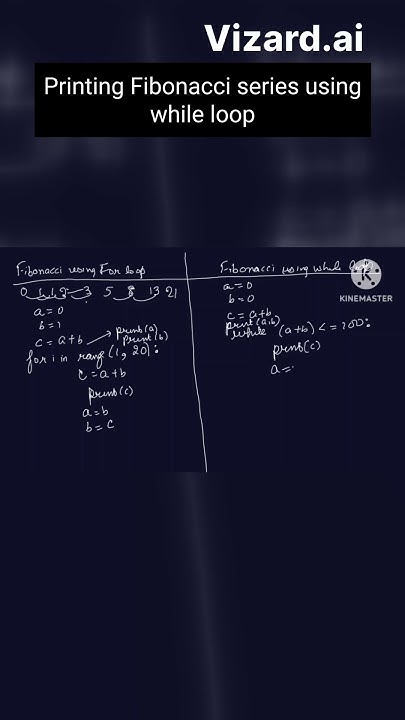 Vizard.ai
Printing Fibonacci series using
while loop
Fibonacci using For loop
0 1 1 2 3 5 8 13 21
a = 0
b = 1
c = a+b
print(a)
print(b)
for i in range (1, 20):
c = a+b
print(c)
a = b
b = c
Fibonacci using while loop
KINEMASTER
a = 0
b = 0
c = a+b
print(a,b)
while (a+b) <= 100:
print(c)
a =